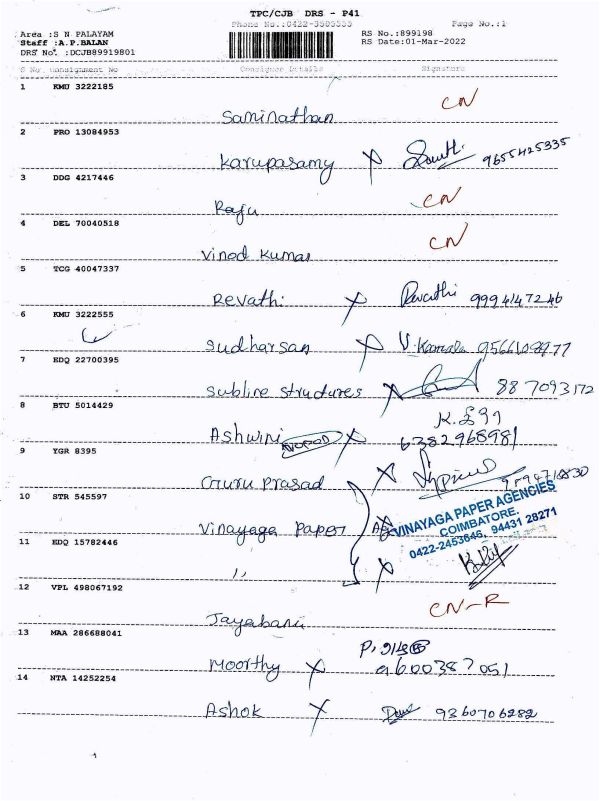 TPC/CJB DRS - P41
Phone No.:0422-3505555 Page No.:1
Area :S N PALAYAM RS No.:899198
Staff :A.P.BALAN RS Date:01-Mar-2022
DRS No. :DCJB89919801
S No. Consignment No Consignee Details Signature
1 KMU 3222185
Saminathan CN
2 PRO 13084953
Karupasamy X 9655425335
3 DDG 4217446
Raju CN
4 DEL 70040518
Vinod Kumar CN
5 TCG 40047337
Revathi X Revathi 9994147246
6 KMU 3222555
Sudharsan X V. Kamala
7 EDQ 22700395
Subline Structures X 887093172
8 BTU 5014429
Ashwini X 6382968981
9 YGR 8395
Guru Prasad X
10 STR 545597
Vinayaga Paper
VINAYAGA PAPER AGENCIES
COIMBATORE.
0422-2453646, 94431 28271
11 EDQ 15782446
〃 X
12 VPL 498067192
Jayabani CN-R
13 MAA 286688041
Moorthy X 9600387051
14 NTA 14252254
Ashok X 9360706282
1